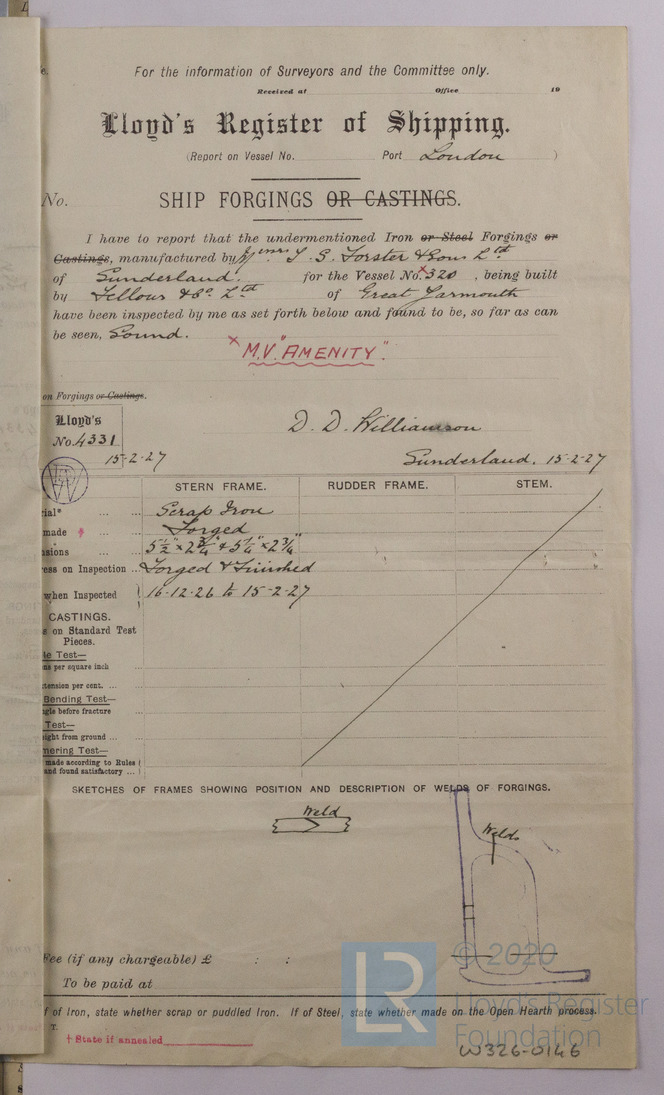 For the information of Surveyors and the Committee only.
Received at Office 19
Lloyd's Register of Shipping.
(Report on Vessel No. Port London )
No.
SHIP FORGINGS OR CASTINGS.
I have to report that the undermentioned Iron or Steel Forgings or
Castings, manufactured by Messrs T. S. Forster & Sons Ltd
of Sunderland. for the Vessel No. x 320 , being built
by Fellows & Co Ltd of Great Yarmouth
have been inspected by me as set forth below and found to be, so far as can
be seen, Sound.
x M.V. "AMENITY".
on Forgings or Castings.
Lloyd's
No. 4331
15-2-27
D. D. Williamson
Sunderland. 15-2-27
STERN FRAME. RUDDER FRAME. STEM.
rial* ... ... Scrap Iron
made † ... ... Forged
nsions ... ... 5 1/2" x 2 3/4" & 5 1/4" x 2 3/4"
ess on Inspection ... Forged & Finished
when Inspected 16-12-26 to 15-2-27
CASTINGS.
s on Standard Test
Pieces.
le Test—
ns per square inch
tension per cent. ...
Bending Test—
ngle before fracture
Test—
ight from ground ...
mering Test—
made according to Rules
and found satisfactory ...
SKETCHES OF FRAMES SHOWING POSITION AND DESCRIPTION OF WELDS OF FORGINGS.
Weld
Welds
Fee (if any chargeable) £ : :
To be paid at
f of Iron, state whether scrap or puddled Iron. If of Steel, state whether made on the Open Hearth process.
T.
† State if annealed
LR
© 2020
Lloyd's Register
Foundation
W326-0146